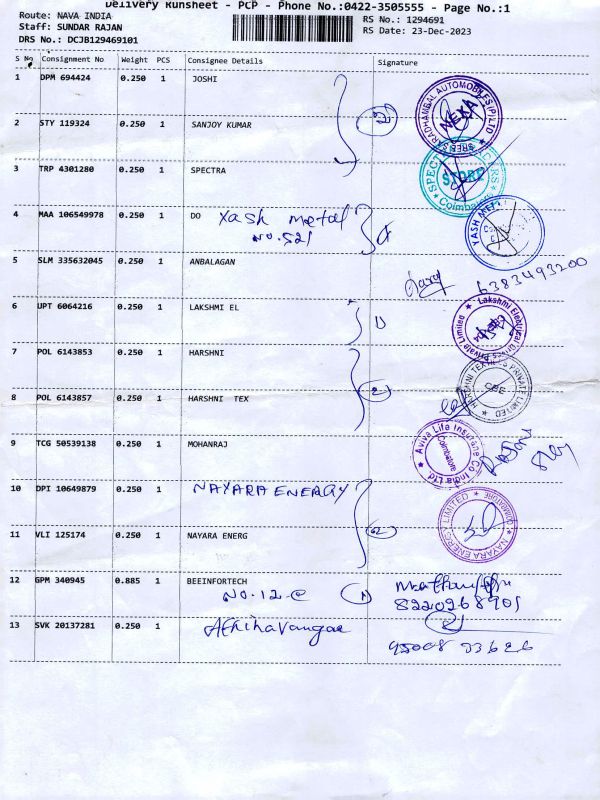 Delivery Runsheet - PCP - Phone No.:0422-3505555 - Page No.:1
Route: NAVA INDIA
Staff: SUNDAR RAJAN
DRS No.: DCJB129469101
RS No.: 1294691
RS Date: 23-Dec-2023
S No Consignment No Weight PCS Consignee Details Signature
1 DPM 694424 0.250 1 JOSHI
2 STY 119324 0.250 1 SANJOY KUMAR
3 TRP 4301280 0.250 1 SPECTRA
STORE
Coimbatore
4 MAA 106549978 0.250 1 DO Yash Metal
NO.521
YASH MET
5 SLM 335632045 0.250 1 ANBALAGAN
6383493200
6 UPT 6064216 0.250 1 LAKSHMI EL
Lakshmi Electrical Drives Private Limited
7 POL 6143853 0.250 1 HARSHNI
2
HARSHNI TEXTILES PRIVATE LIMITED
CBE
8 POL 6143857 0.250 1 HARSHNI TEX
9 TCG 50539138 0.250 1 MOHANRAJ
Aviva Life Insurance Co India Ltd
Coimbatore
10 DPI 10649879 0.250 1 NAYARA ENERGY
NAYARA ENERGY LIMITED
COIMBATORE
11 VLI 125174 0.250 1 NAYARA ENERG
12 GPM 340945 0.885 1 BEEINFORTECH
NO.12-C
8220268901
13 SVK 20137281 0.250 1
95008 33626